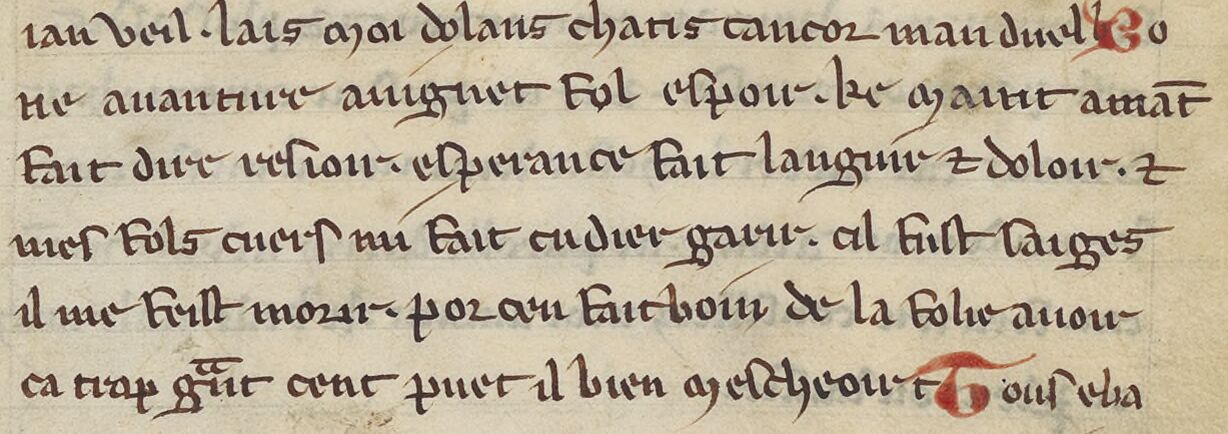 ian veil . lais moi dolans chatis cancor man duel Bo
ne auanture auignet fol espoir . ke maint amāt
fait dire resioir . esperance fait languir ⁊ doloir . ⁊
mes fols cuers mi fait cudier garir . cil fust saiges
il me feist morir . por ceu fait boin de la folie auoir
ca trap gͣnt cent puet il bien mescheoir t Tous eba